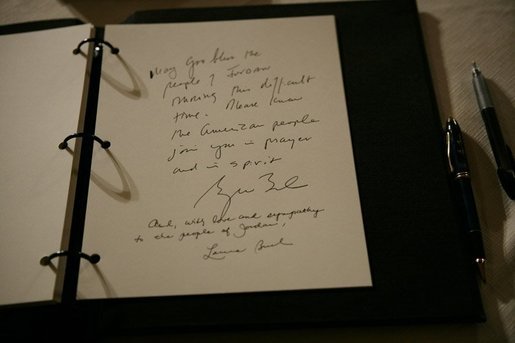 May God bless the
people of Jordan
during this difficult
time. Please know
the American people
join you in prayer
and in spirit
George Bush
And, with love and sympathy
to the people of Jordan,
Laura Bush